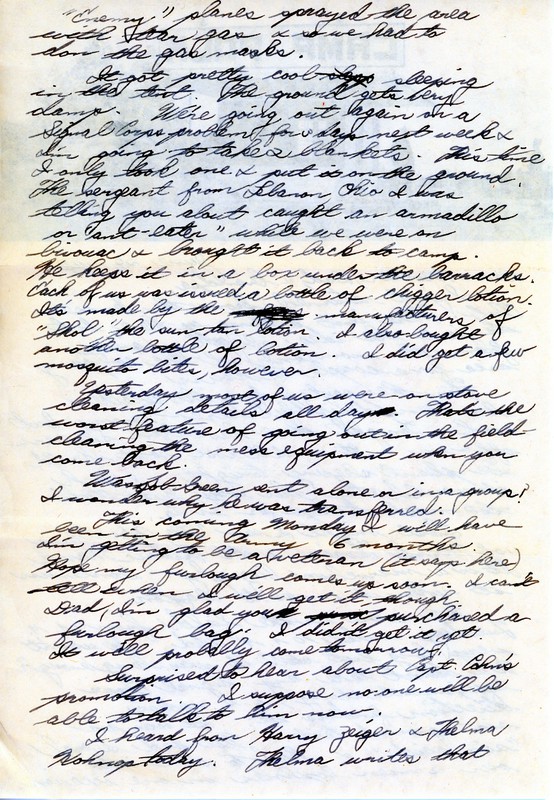 "Enemy" planes sprayed the area
with tear gas & so we had to
don the gas masks.
It got pretty cool sleeping
in the tent. The ground gets very
damp. We're going out again on a
Signal Corps problem for 5 days next week &
I'm going to take 2 blankets. This time
I only took one & put it on the ground.
The sergeant from Lebanon Ohio I was
telling you about caught an armadillo
or "ant-eater" while we were on
bivouac & brought it back to camp.
He keeps it in a box under the barracks.
Each of us was issued a bottle of chigger lotion.
Its made by the manufacturers of
"Skol" the sun tan lotion. I also bought
another bottle of lotion. I did get a few
mosquito bites, however.
Yesterday most of us were on stove
cleaning details all day. Thats the
worst feature of going out in the field -
cleaning the mess equipment when you
come back.
Was Bob Green sent alone or in a group?
I wonder why he was transferred.
This coming Monday I will have
been in the Army 6 months.
I'm getting to be a veteran (it says here)
Hope my furlough comes up soon. I can't
tell when I will get it though
Dad, I'm glad you purchased a
furlough bag. I didn't get it yet.
It will probably come tomorrow.
Surprised to hear about Capt. Cohn's
promotion. I suppose no one will be
able to talk to him now.
I heard from Harry Zeiger & Thelma
today. Thelma writes that